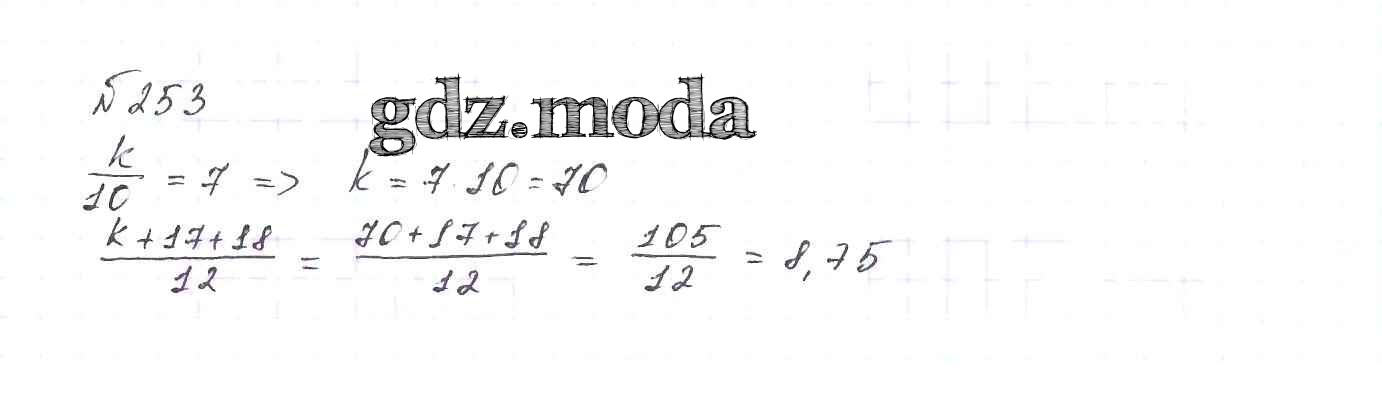 №253
gdz.moda
k/10 = 7 => k = 7·10 = 70
(k+17+18)/12 = (70+17+18)/12 = 105/12 = 8,75